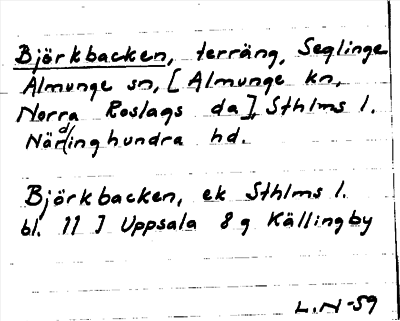 Björkbacken, terräng, Seglinge
Almunge sn, [Almunge kn,
Norra Roslags da], Sthlms l.
Närdinghundra hd.
Björkbacken, ek Sthlms l.
bl. 11 J Uppsala 8 g Källingby
L.N-59